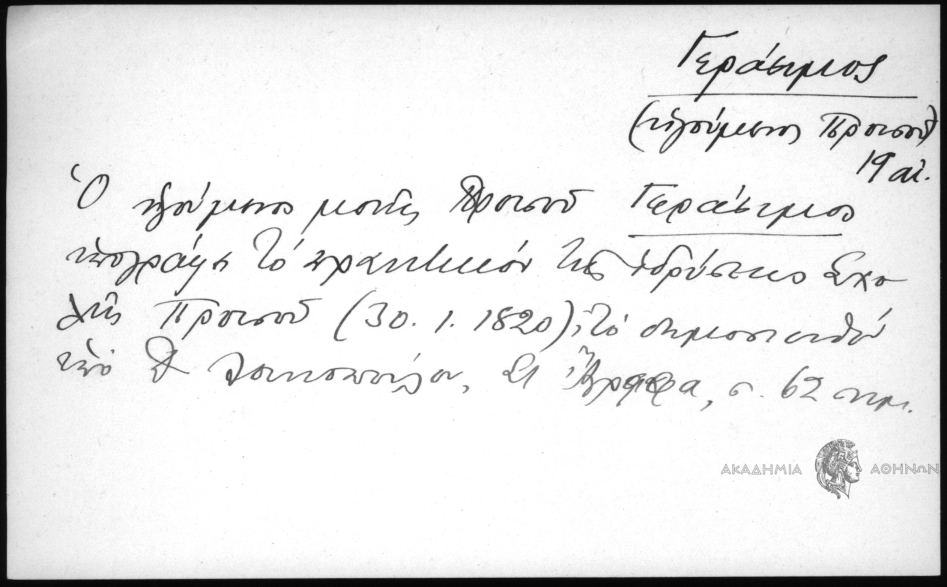 Γεράσιμος
(ηγούμενος Προυσού)
19 αἰ.
Ὁ ηγούμενος μονῆς Προυσοῦ Γεράσιμος
υπογράφει τὸ πρακτικόν τῆς ἱδρύσεως Σχο
λῆς Προυσοῦ (30.1.1820), τὸ δημοσιευθέν
ὑπὸ , σ. 62 σημ.
ΑΚΑΔΗΜΙΑ ΑΘΗΝΩΝ